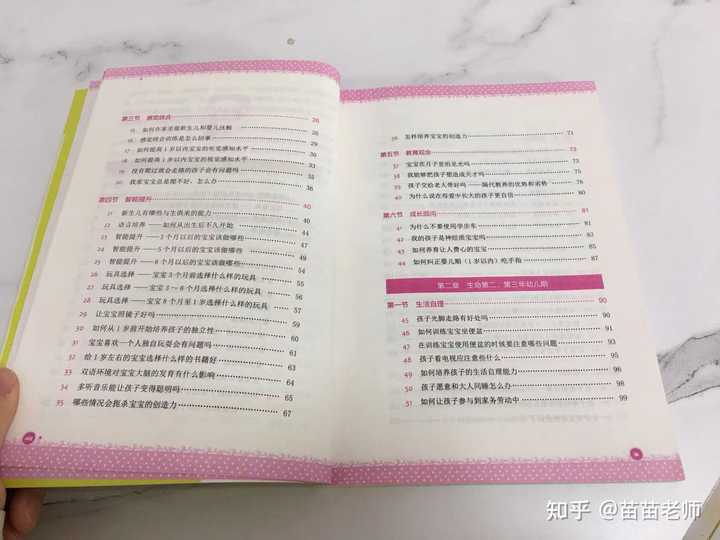 第三节 感觉统合 26
15 如何在家里做新生儿和婴儿抚触 26
16 感觉统合训练是怎么回事
17 如何提高1岁以内宝宝的听觉感知水平
18 如何提高1岁以内宝宝的视觉感知水平
19 没有爬过就会走路的孩子会有问题吗 35
20 我家宝宝总是摆不好，怎么办 38
第四节 智能提升 40
21 新生儿有哪些与生俱来的能力
22 语言培养——如何从出生后不久开始
23 智能提升——3个月以后的宝宝该做哪些
24 智能提升——5个月以后的宝宝该做哪些
25 智能提升——8个月以后的宝宝该做哪些
26 玩具选择——宝宝3个月前选择什么样的玩具
27 玩具选择——宝宝3个月以后选择什么样的玩具
28 玩具选择——宝宝8个月至1岁选择什么样的玩具
29 让宝宝照镜子好吗
30 如何从1岁前开始培养孩子的独立性 60
31 宝宝喜欢一个人独自玩耍会有问题吗 61
32 给1岁左右的宝宝选择什么样的书籍好 62
33 双语环境对宝宝大脑的发育有什么影响 64
34 多听音乐能让孩子变得聪明吗 65
35 哪些情况会扼杀宝宝的创造力 67
36 怎样培养宝宝的创造力 71
第五节 教育观念 73
37 宝宝在月子里怕见光吗 73
38 我能够把孩子塑造成天才吗 75
39 孩子交给老人带好吗——隔代教养的优势和劣势 76
40 为什么说在母爱中长大的孩子更自信 79
第六节 成长困惑 81
41 为什么不要使用学步车 81
42 我的孩子是神经质宝宝吗 83
43 如何养育让人费心的宝宝 84
44 如何纠正婴儿期（1岁以内）吃手指 87
第二章 生命第二、第三年幼儿期
第一节 生活自理 90
45 孩子光脚走路有好处吗 90
46 如何训练宝宝坐便盆 91
47 在训练宝宝使用便盆的时候要注意哪些问题 93
48 孩子看电视应注意些什么 95
49 如何培养孩子的生活自理能力 96
50 孩子愿意和大人同睡怎么办 98
51 如何让孩子参与到家务劳动中 99
知乎 @苗苗老师